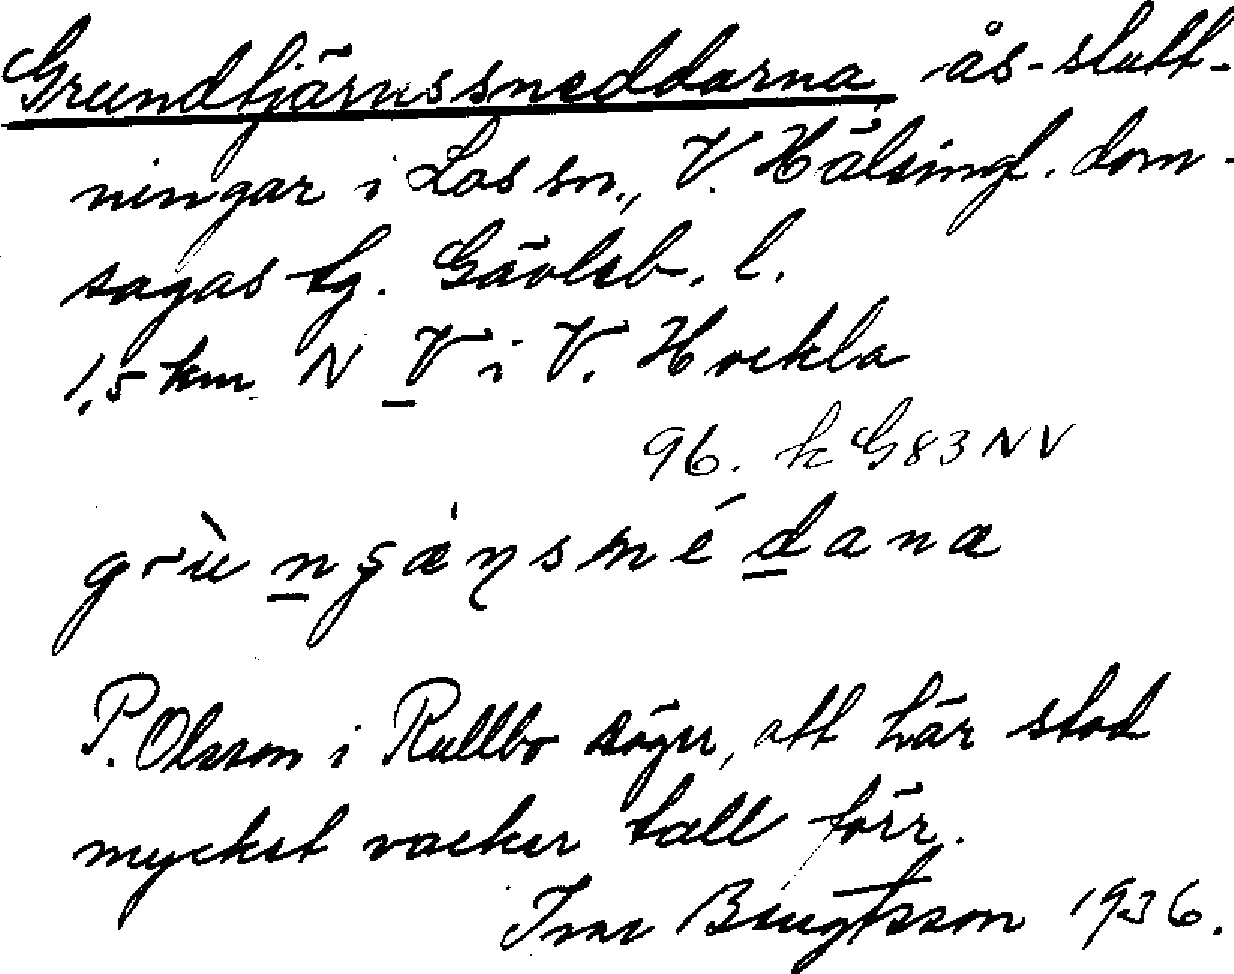 Grundtjärnssneddarna, ås-slutt-
ningar i Los sn., V. Hälsingl. dom-
sagas tg. Gävleb. l.
1,5 km N V i V. Hockla
96. k G83NV
P. Olsson i Rullbo säger, att här stod
mycket vacker tall förr.
Ivar Bengtsson 1936.